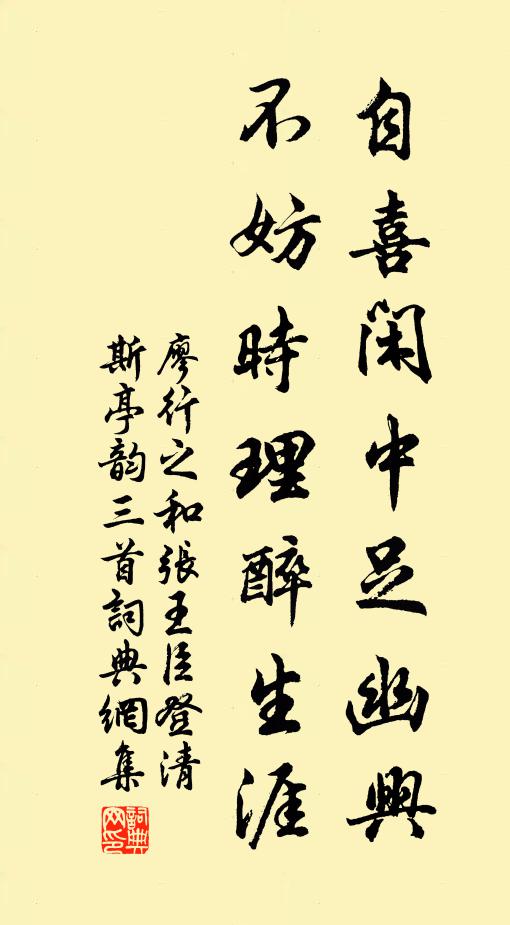 自喜閑中足幽興
不妨時理醉生涯
廖行之和張王臣登清
斯亭韵三首詞典網集
詞典
网印